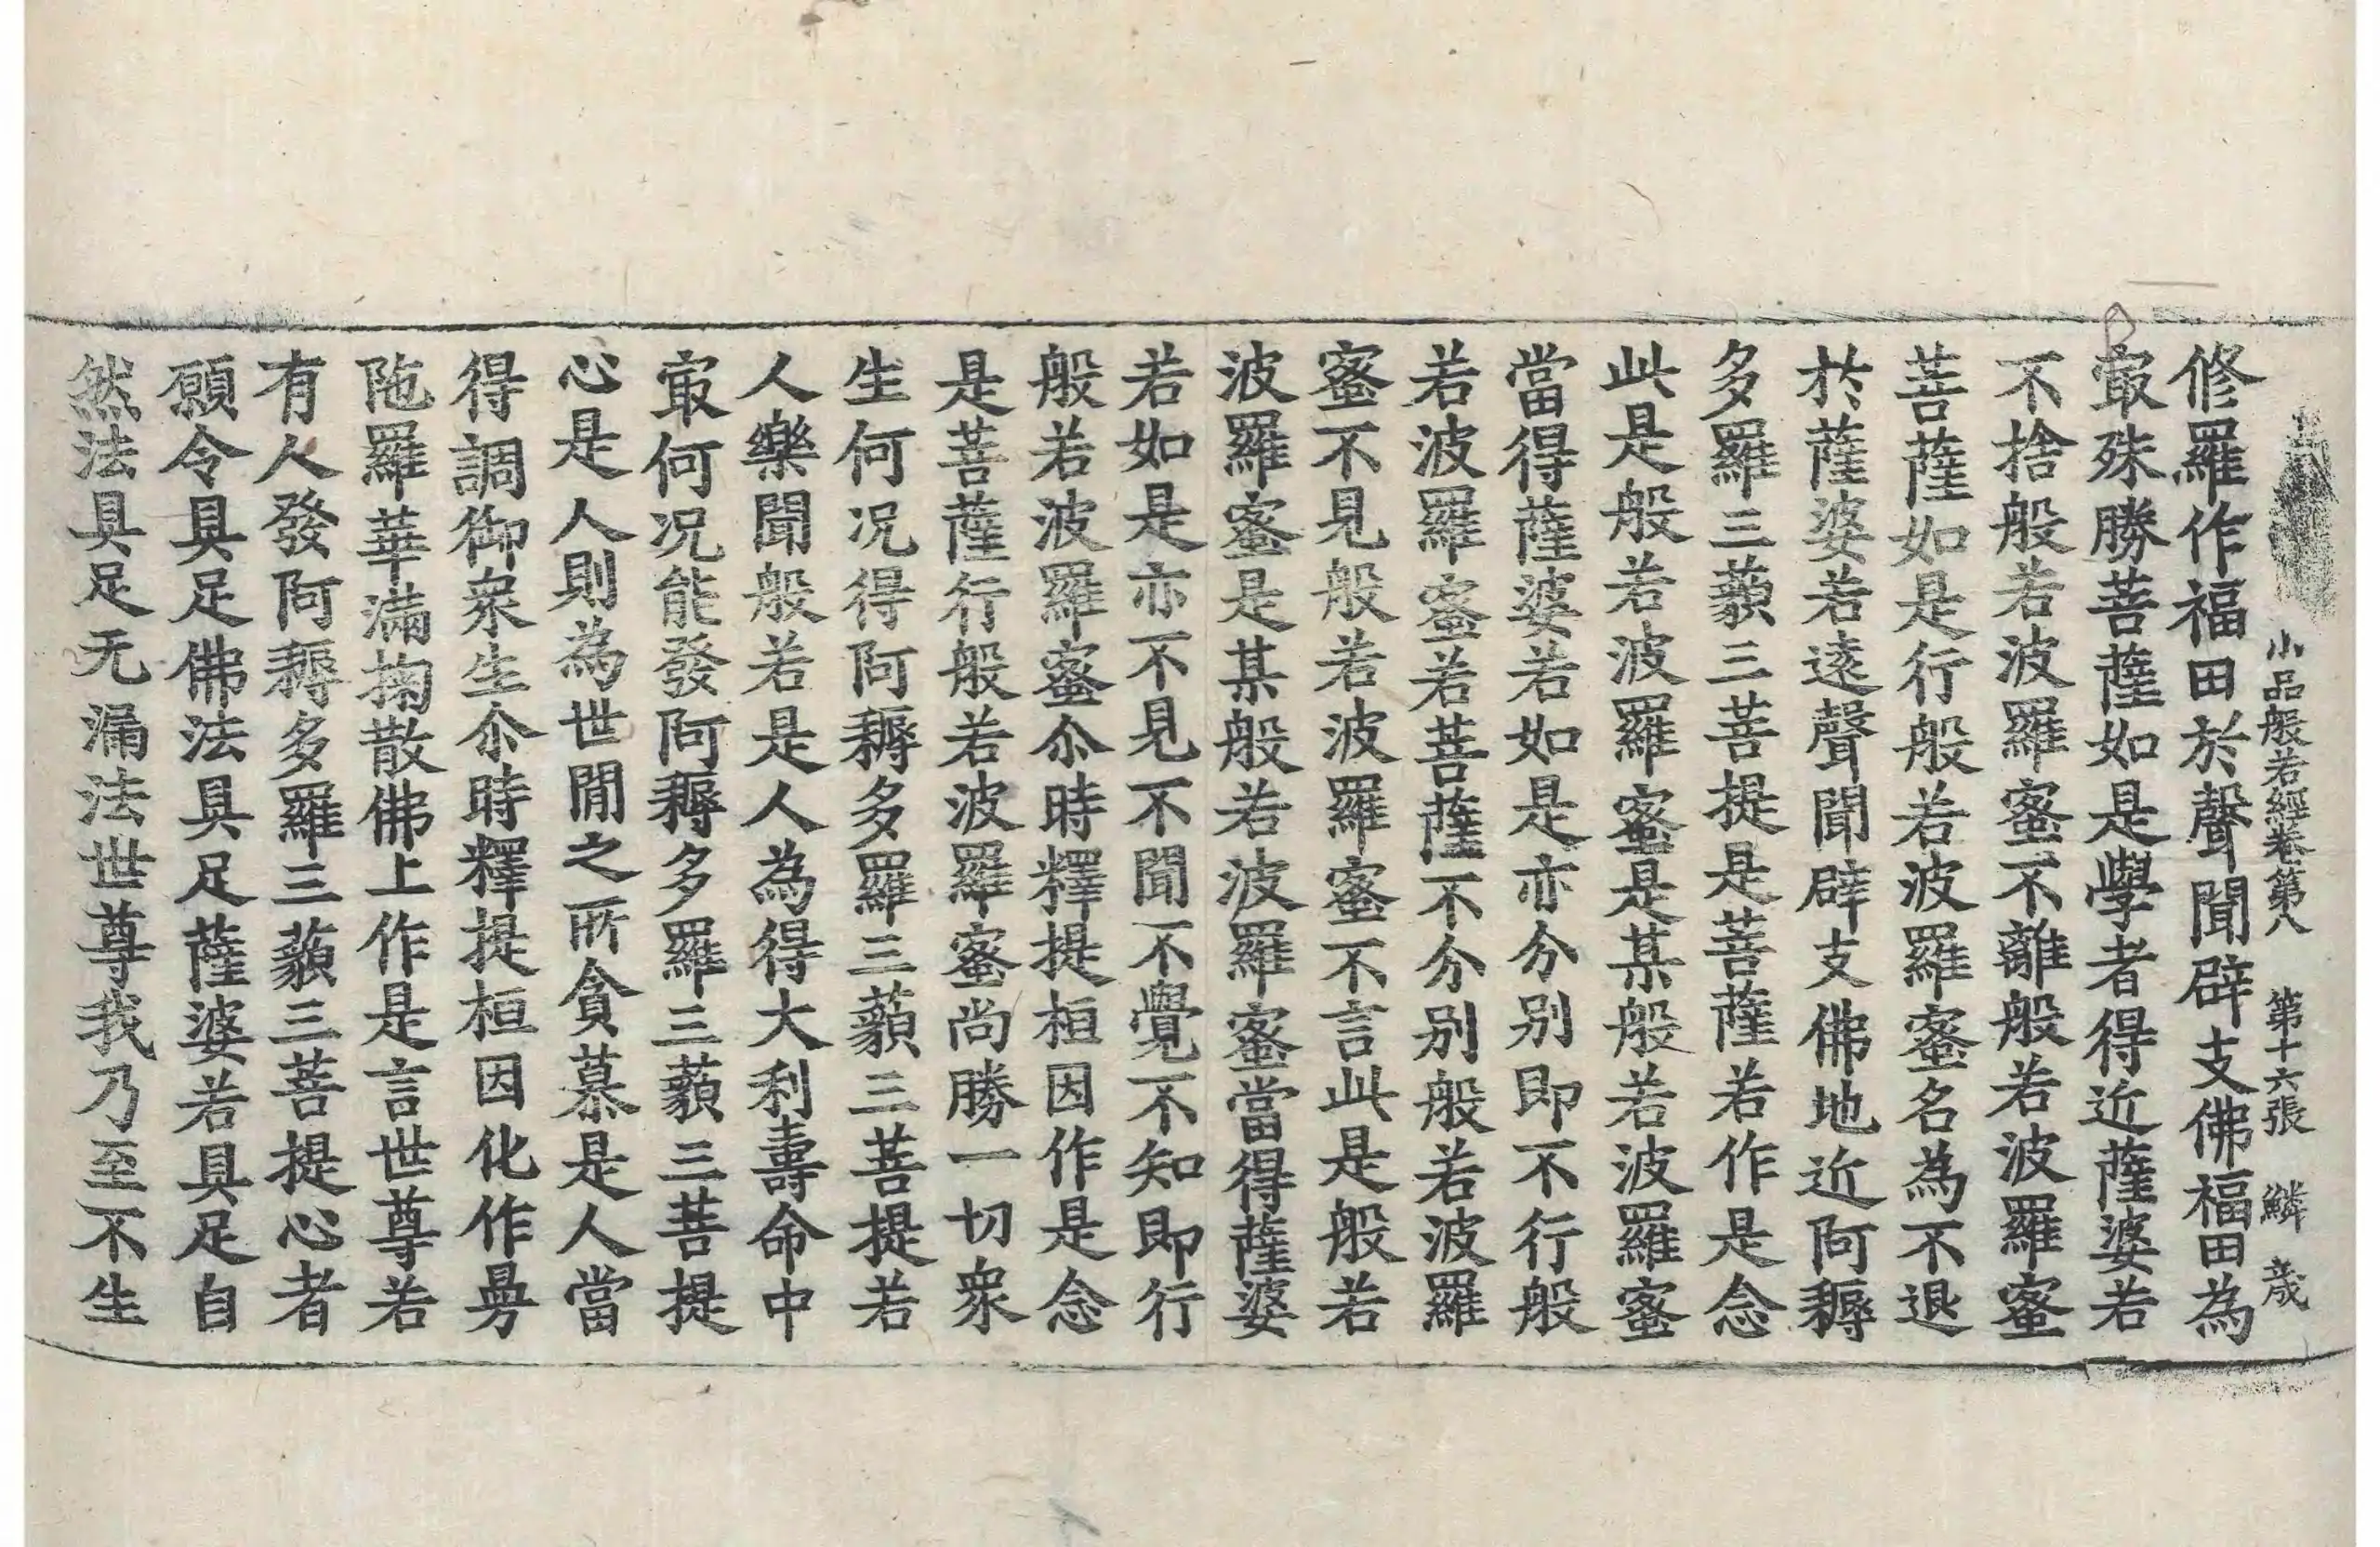 小品般若經卷第八　第十六張　鱗　歲
修羅作福田於聲聞辟支佛福田為
㝡殊勝菩薩如是學者得近薩婆若
不捨般若波羅蜜不離般若波羅蜜
菩薩如是行般若波羅蜜名為不退
於薩婆若遠聲聞辟支佛地近阿耨
多羅三藐三菩提是菩薩若作是念
此是般若波羅蜜是某般若波羅蜜
當得薩婆若如是亦分别即不行般
若波羅蜜若菩薩不分别般若波羅
蜜不見般若波羅蜜不言此是般若
波羅蜜是某般若波羅蜜當得薩婆
若如是亦不見不聞不覺不知即行
般若波羅蜜尒時釋提桓因作是念
是菩薩行般若波羅蜜尚勝一切衆
生何况得阿耨多羅三藐三菩提若
人樂聞般若是人為得大利壽命中
㝡何况能發阿耨多羅三藐三菩提
心是人則為世閒之所貪慕是人當
得調御衆生尒時釋提桓因化作曼
陁羅華滿掬散佛上作是言世尊若
有人發阿耨多羅三藐三菩提心者
願令具足佛法具足薩婆若具足自
然法具足无漏法世尊我乃至不生